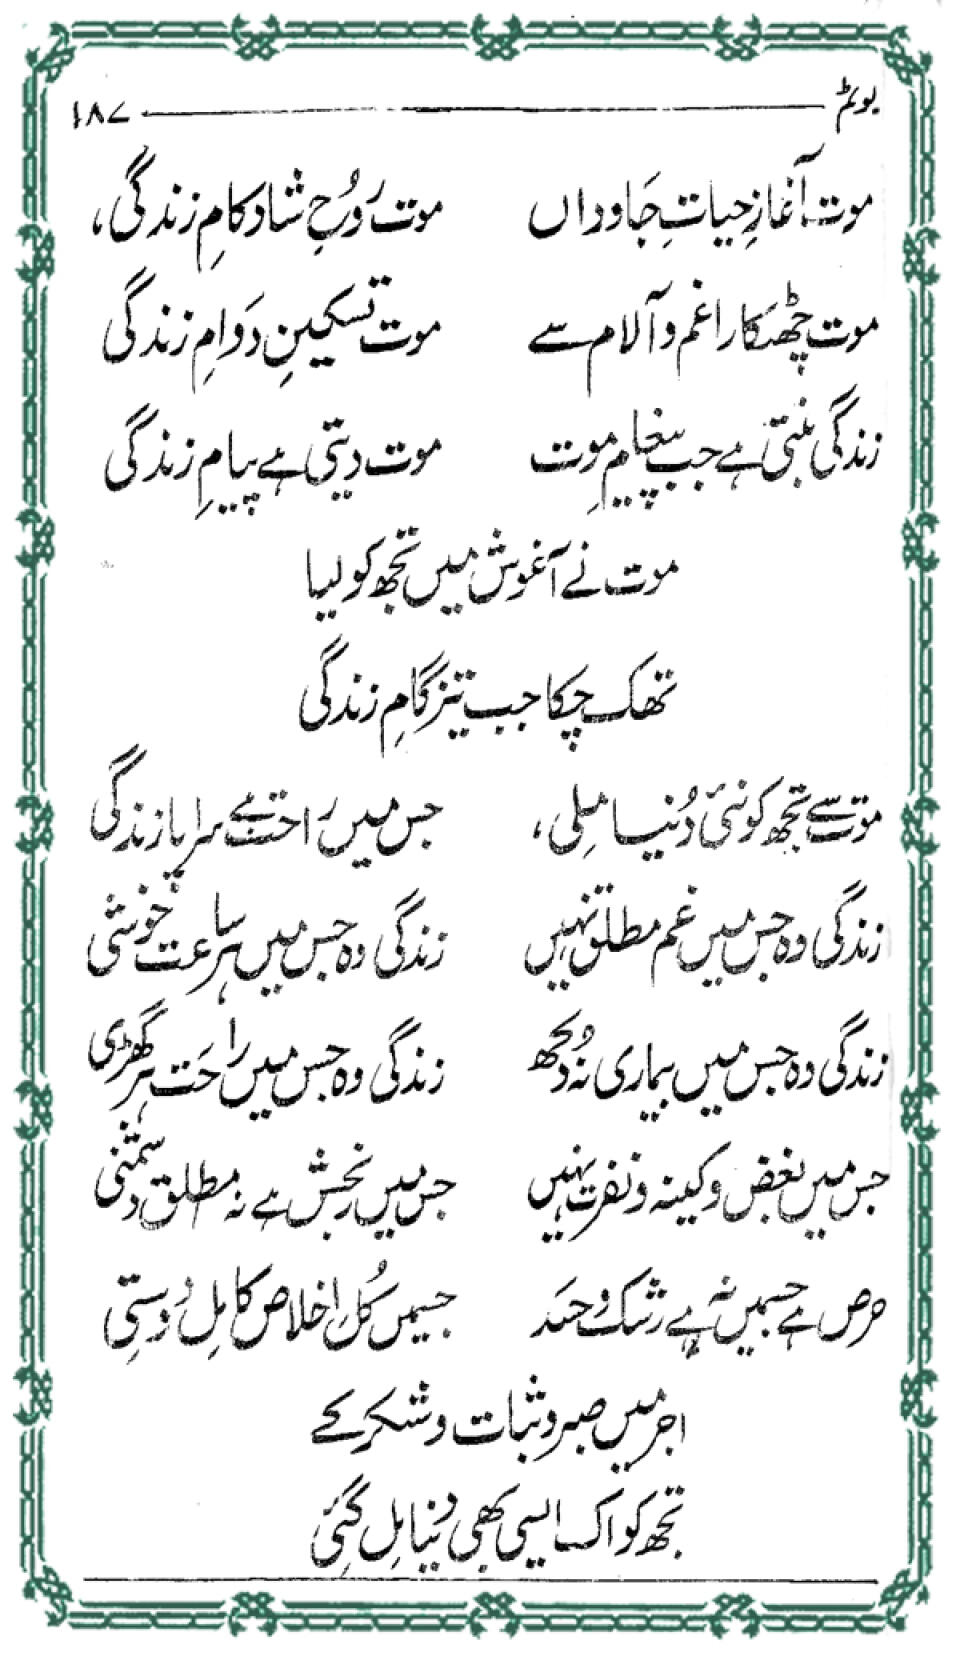 بوئم ۱۸۷
موت آغازِ حیاتِ جَاوداں موت رُوحِ شاد کامِ زندگی،
موت چھٹکارا غم و آلام سے موت تسکینِ دَوامِ زندگی
زندگی بنتی ہے جب پیغامِ موت موت دیتی ہے پیامِ زندگی
موت نے آغوش میں تجھ کو لیا
تھک چکا جب تیز گامِ زندگی
موت سے تجھ کو نئی دُنیا مِلی، جس میں راحت ہے سراپا زندگی
زندگی وہ جس میں غم مطلق نہیں زندگی وہ جس میں ہر ساعت خوشی
زندگی وہ جس میں بیماری نہ دُکھ زندگی وہ جس میں راحَت ہر گھڑی
جس میں بغض و کینہ و نفرت نہیں جس میں رنجش ہے نہ مطلق دشمنی
حرص ہے جسمیں نہ ہے رشک و حسَد جسمیں کُل اخلاص کامِل دُوستی
اجر میں صبر و ثبات و شکر کے
تجھ کو اک ایسی بھی دنیا مِل گئی